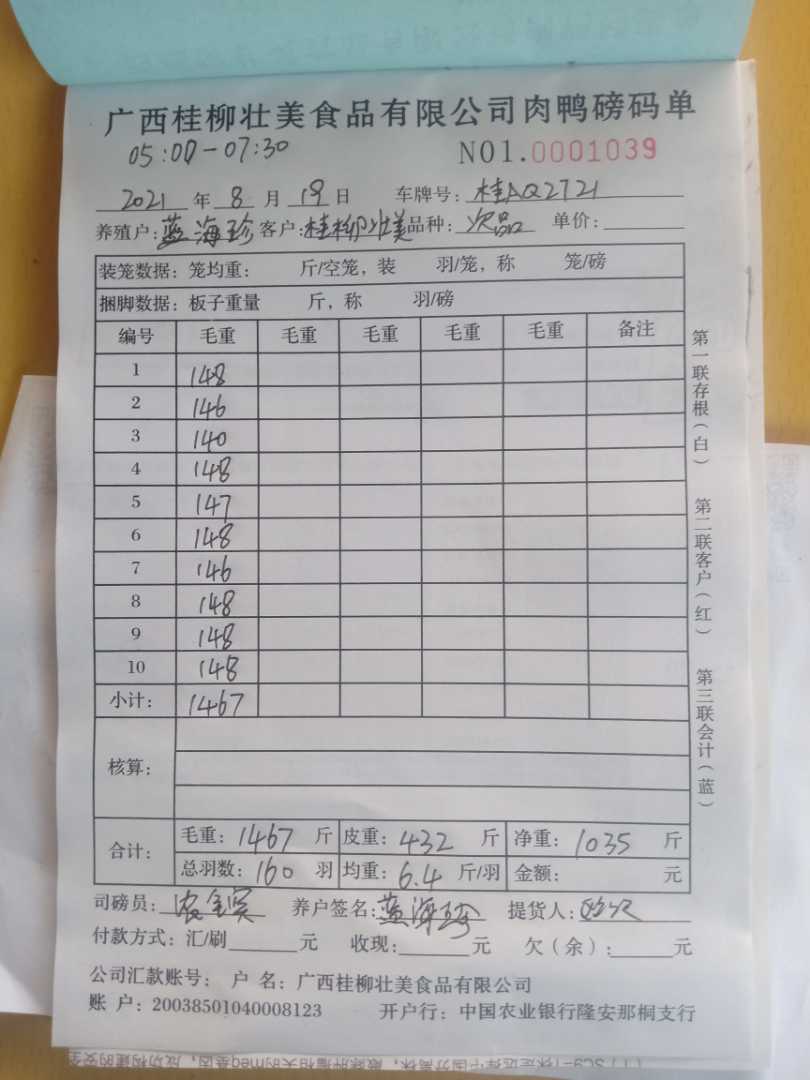 广西桂柳壮美食品有限公司肉鸭磅码单
05:00-07:30 NO1.0001039
2021 年 8 月 19 日 车牌号: 桂AQ2721
养殖户: 蓝海珍 客户: 桂柳壮美 品种: 次品 单价:
装笼数据: 笼均重: 斤/空笼, 装 羽/笼, 称 笼/磅
捆脚数据: 板子重量 斤, 称 羽/磅
编号 毛重 毛重 毛重 毛重 毛重 备注
1 148
2 146
3 140
4 148
5 147
6 148
7 146
8 148
9 148
10 148
小计: 1467
核算:
合计: 毛重: 1467 斤 皮重: 432 斤 净重: 1035 斤
总羽数: 160 羽 均重: 6.4 斤/羽 金额: 元
司磅员: 农 养户签名: 蓝海珍 提货人:
付款方式: 汇/刷 元 收现: 元 欠(余): 元
公司汇款账号: 户 名: 广西桂柳壮美食品有限公司
账 户: 20038501040008123 开户行: 中国农业银行隆安那桐支行
第一联存根(白)
第二联客户(红)
第三联会计(蓝)